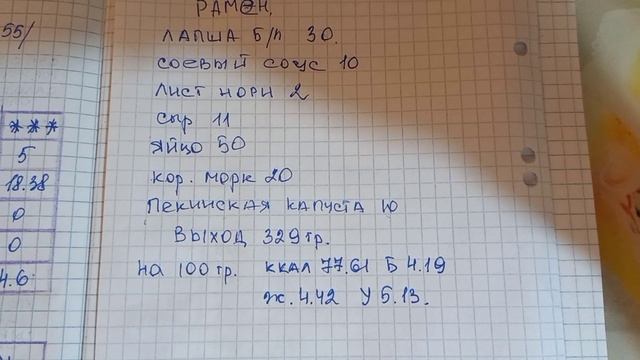 РАМЕН.
ЛАПША Б/П 30.
СОЕВЫЙ СОУС 10
ЛИСТ НОРИ 2
СЫР 11
ЯЙЦО 50
КОР. МОРК 20
ПЕКИНСКАЯ КАПУСТА 10
ВЫХОД 329 ГР.
НА 100 ГР. ККАЛ 77.61 Б 4.19
Ж. 4.42 У 5.13.
55/
***
5
18.38
0
0
4.6